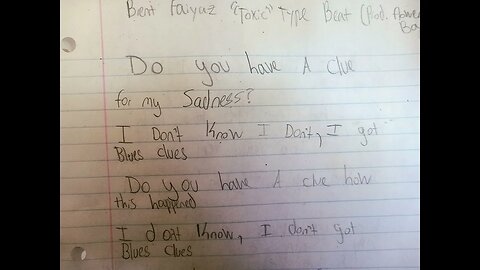 Brent faiyaz "Toxic" Type Beat (Prod.
Do you have A clue
for my Sadness?
I Don't Know I Don't, I got
Blues clues
Do you have A clue how
this happened
I dont Know, I don't got
Blues Clues